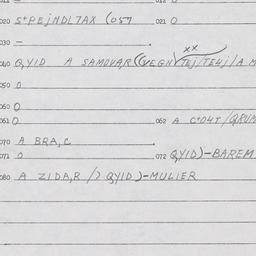 020 S+PEJNDL7AX (057 021 O
030 —
040 Q,YID A SAMOVAR((VEGN
050 O
060 O
061 O 062 A C+04T/QRUN
070 A BRA,C
071 O 072 QYID)-BAREM
080 A ZIDA,R /) QYID)-MULIER